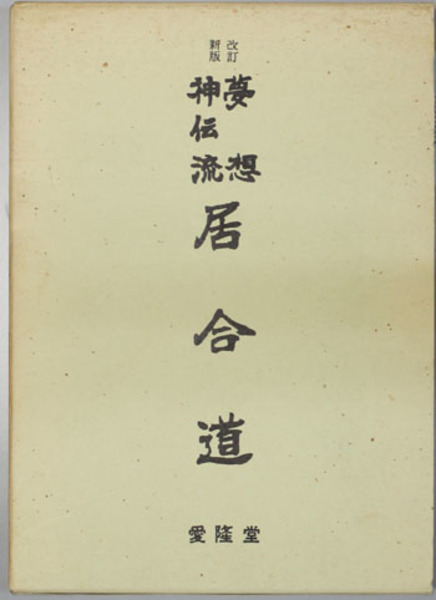 改訂
新版
夢想
神伝流
居合道
愛隆堂